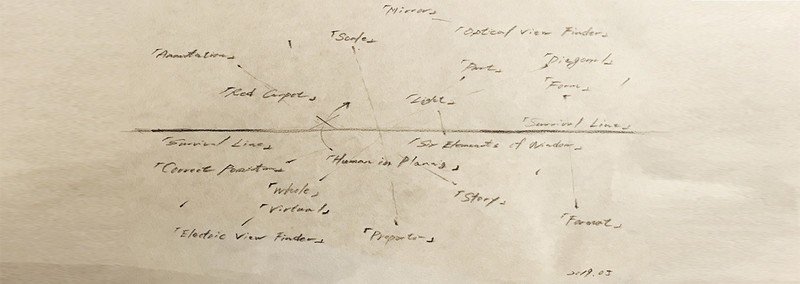 「Mirror」
「Optical View Finder」
「Scale」
「Annotation」
「Part」
「Diagonal」
「Form」
「Red Carpet」
「Light」
「Survival Line」
「Survival Line」
「Six Elements of Window」
「Correct Position」
「Human in Planning」
「Whole」
「Virtual」
「Story」
「Format」
「Electric View Finder」
「Proportion」
2019.03